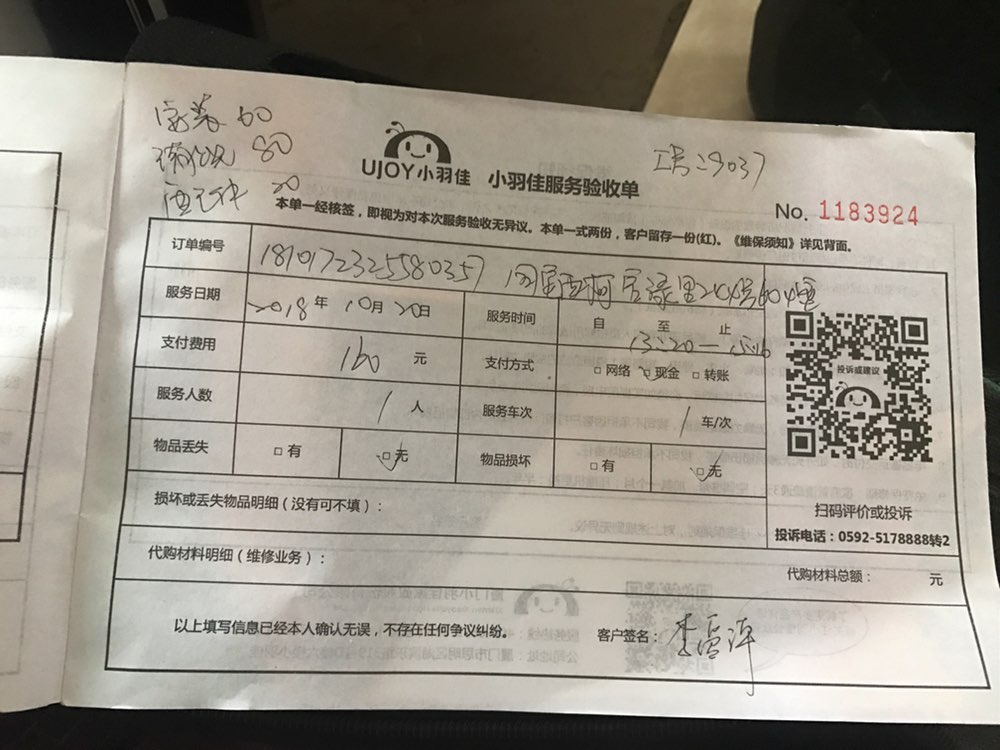 安装 60
80
20
工号:29037
UJOY小羽佳 小羽佳服务验收单
No. 1183924
本单一经核签，即视为对本次服务验收无异议。本单一式两份，客户留存一份(红)。《维保须知》详见背面。
订单编号 1810172325580357
服务日期 2018年 10月 20日 服务时间 自 至 止
支付费用 160 元 支付方式 □网络 □现金 □转账
服务人数 1 人 服务车次 1 车/次
物品丢失 □有 □无 物品损坏 □有 □无
投诉或建议
扫码评价或投诉
投诉电话：0592-5178888转2
损坏或丢失物品明细（没有可不填）：
代购材料明细（维修业务）：
代购材料总额： 元
以上填写信息已经本人确认无误，不存在任何争议纠纷。 客户签名：